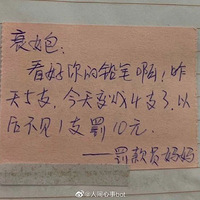 衰女包:
看好你的铅笔啊!昨
天5支,今天变成4支了,以
后不见1支罚10元.
——罚款员妈妈
@人间心事bot